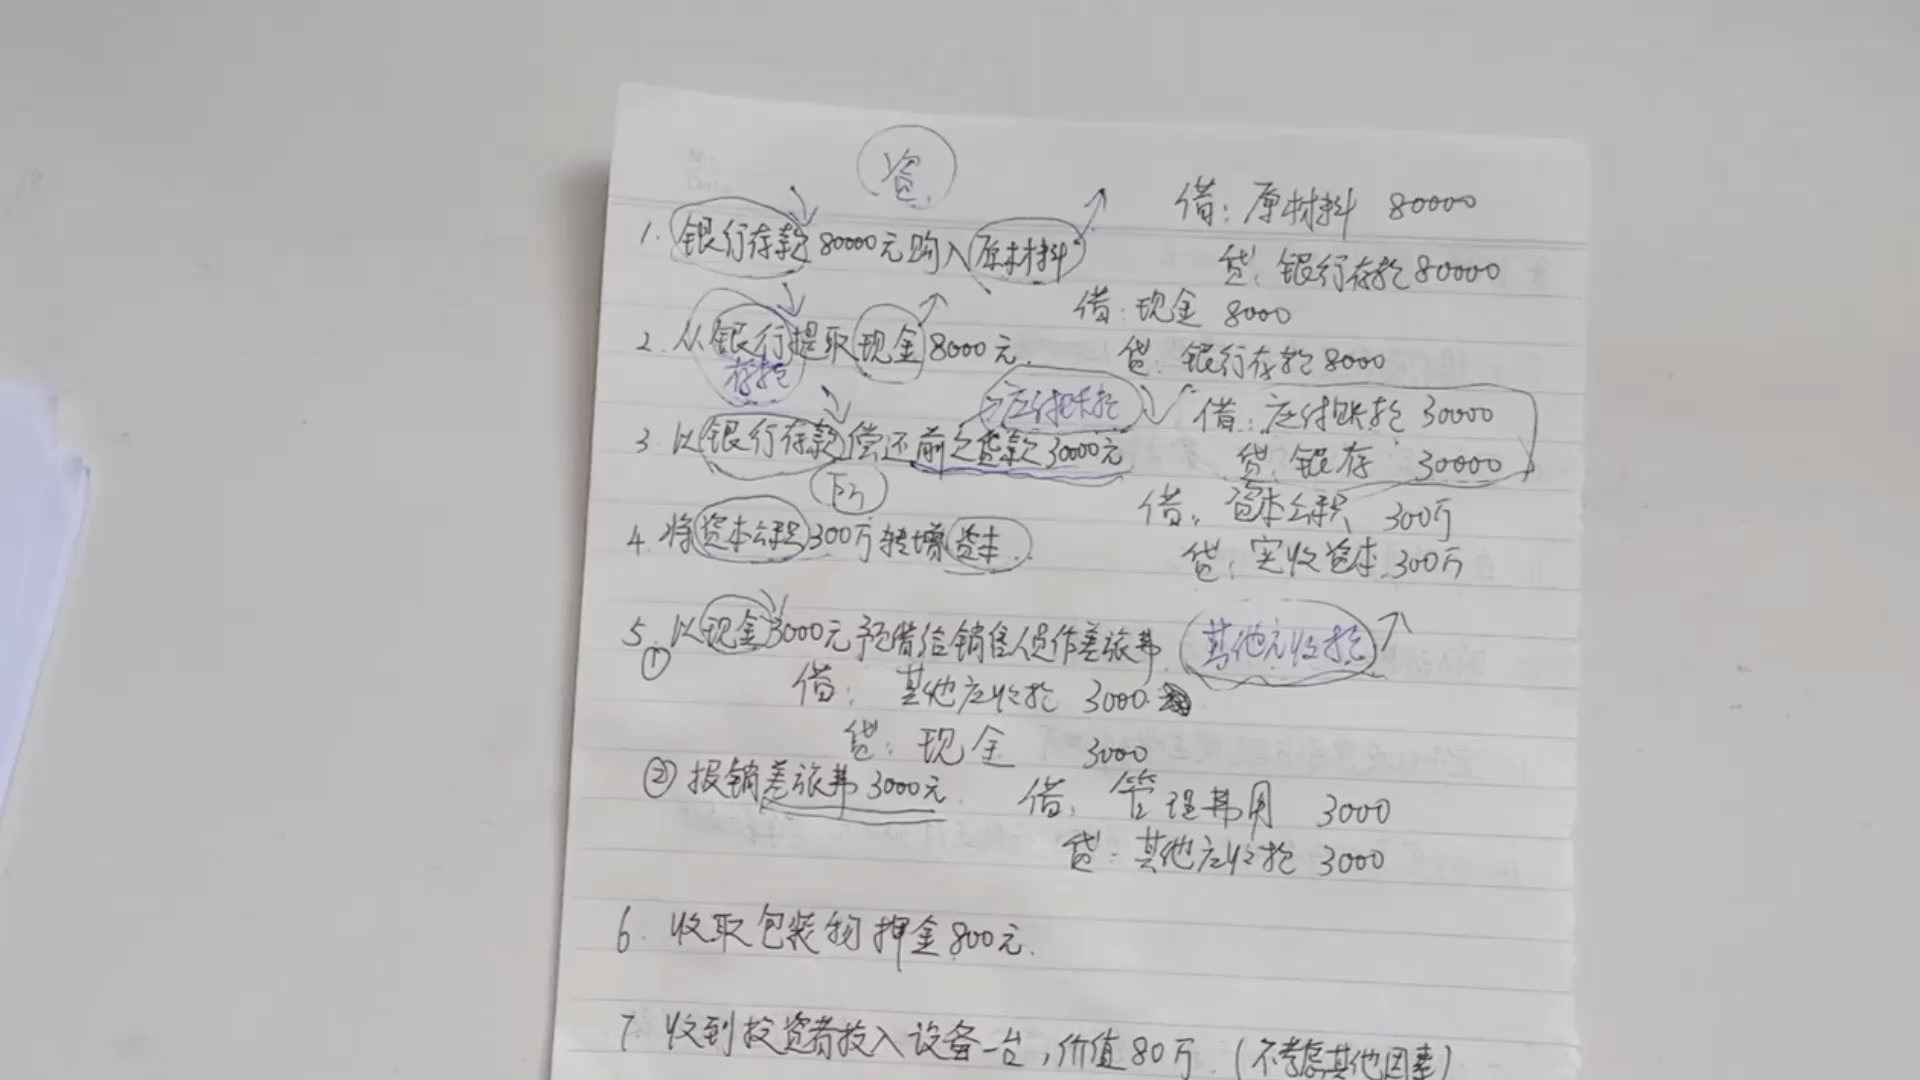 资
借：原材料 80000
1. 银行存款80000元购入原材料
贷：银行存款80000
借：现金 8000
2. 从银行提取现金8000元.
存款
贷：银行存款8000
应付账款
借：应付账款 30000
3. 以银行存款偿还前欠货款30000元
贷：银存 30000
借：资本公积 300万
4. 将资本公积300万转增资本.
贷：实收资本 300万
5. 以现金3000元预借给销售人员作差旅费.
其他应收款
①
借：其他应收款 3000
贷：现金 3000
② 报销差旅费3000元. 借：管理费用 3000
贷：其他应收款 3000
6. 收取包装物押金800元.
7. 收到投资者投入设备一台，价值80万.（不考虑其他因素）